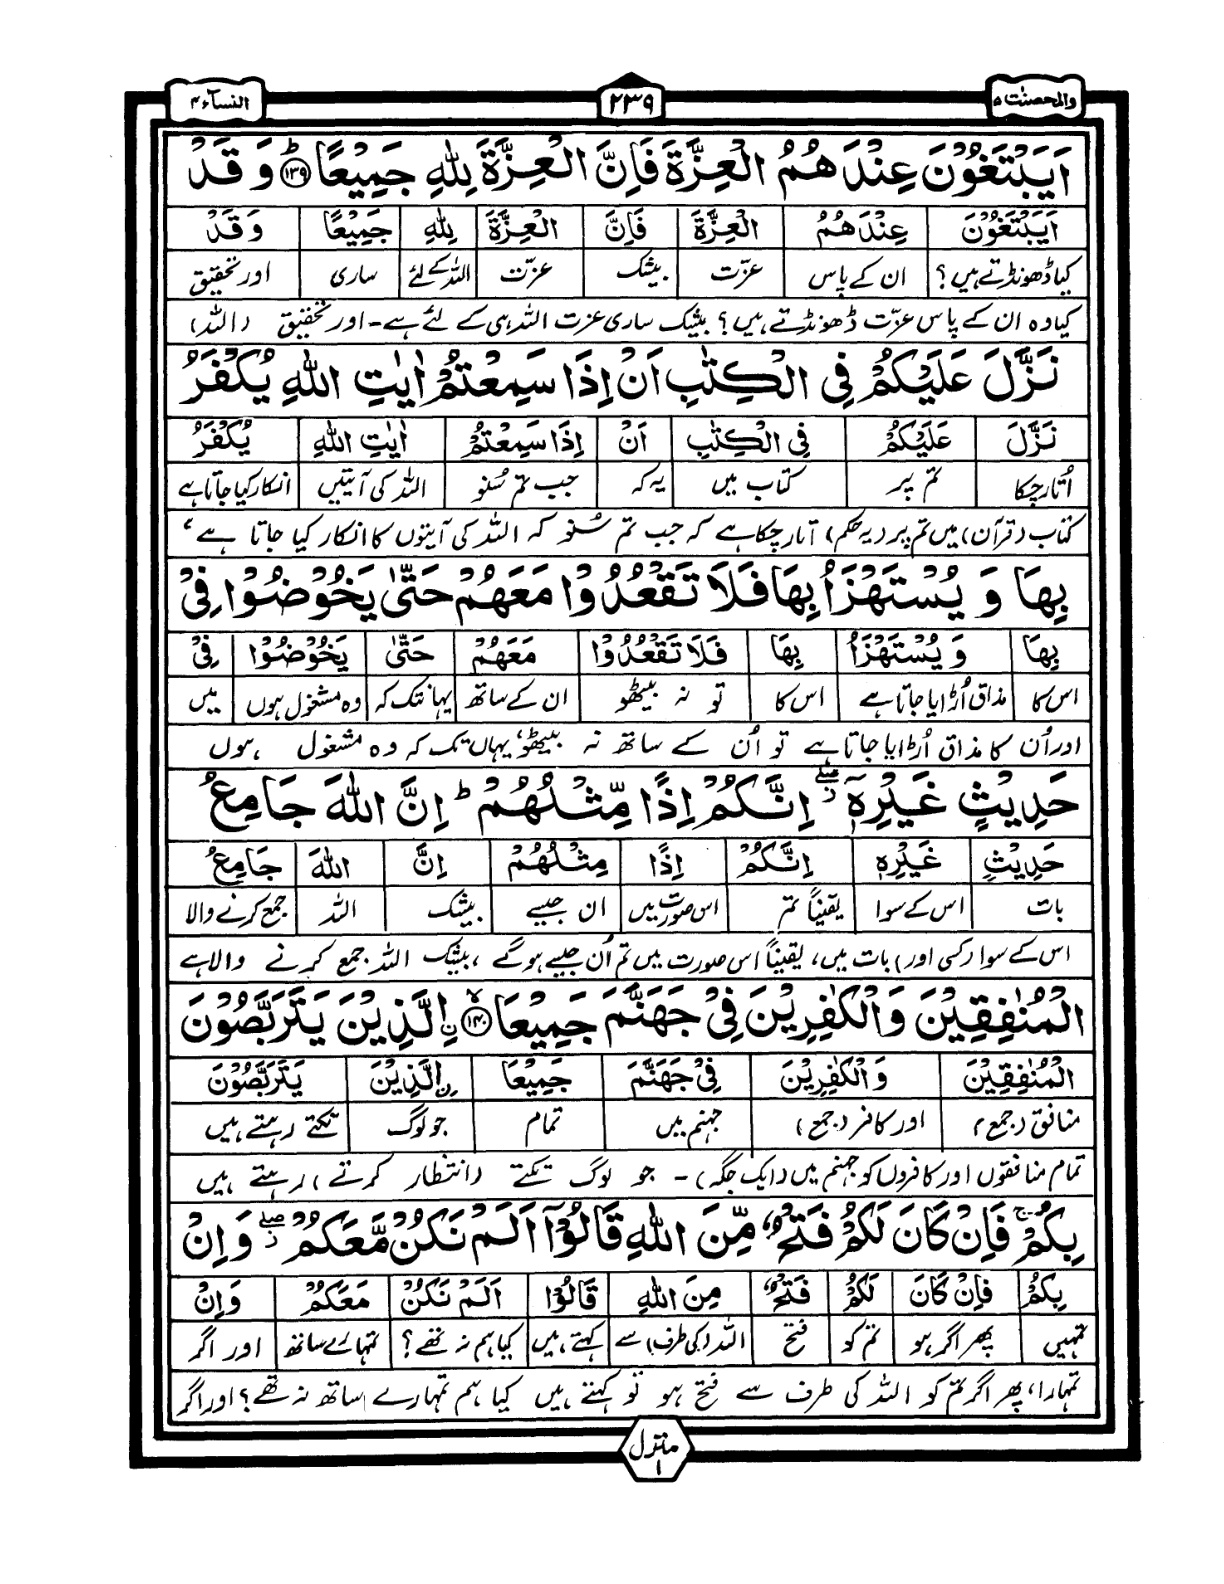 والمحصنت ۵
۲۳۹
النسآء ۴
اَيَبْتَغُوْنَ عِنْدَهُمُ الْعِزَّةَ فَاِنَّ الْعِزَّةَ لِلّٰهِ جَمِيْعًا ؕ﴿۱۳۹﴾ وَ قَدْ
اَيَبْتَغُوْنَ عِنْدَهُمُ الْعِزَّةَ فَاِنَّ الْعِزَّةَ لِلّٰهِ جَمِيْعًا وَ قَدْ
کیا ڈھونڈتے ہیں؟ ان کے پاس عزّت بیشک عزّت اللہ کے لئے ساری اور تحقیق
کیا وہ ان کے پاس عزّت ڈھونڈتے ہیں؟ بیشک ساری عزت اللہ ہی کے لئے ہے۔ اور تحقیق (اللہ)
نَزَّلَ عَلَيْكُمْ فِى الْكِتٰبِ اَنْ اِذَا سَمِعْتُمْ اٰيٰتِ اللّٰهِ يُكْفَرُ
نَزَّلَ عَلَيْكُمْ فِى الْكِتٰبِ اَنْ اِذَا سَمِعْتُمْ اٰيٰتِ اللّٰهِ يُكْفَرُ
اُتار چکا تم پر کتاب میں یہ کہ جب تم سُنو اللہ کی آیتیں انکار کیا جاتا ہے
کتاب (قرآن) میں تم پر (یہ حکم) اتار چکا ہے کہ جب تم سُنو کہ اللہ کی آیتوں کا انکار کیا جاتا ہے،
بِهَا وَ يُسْتَهْزَاُ بِهَا فَلَا تَقْعُدُوْا مَعَهُمْ حَتّٰى يَخُوْضُوْا فِىْ
بِهَا وَ يُسْتَهْزَاُ بِهَا فَلَا تَقْعُدُوْا مَعَهُمْ حَتّٰى يَخُوْضُوْا فِىْ
اس کا مذاق اُڑایا جاتا ہے اس کا تو نہ بیٹھو ان کے ساتھ یہانتک کہ وہ مشغول ہوں میں
اور اُن کا مذاق اُڑایا جاتا ہے تو اُن کے ساتھ نہ بیٹھو، یہاں تک کہ وہ مشغول ہوں
حَدِيْثٍ غَيْرِهٖٓ ۖ اِنَّكُمْ اِذًا مِّثْلُهُمْ ؕ اِنَّ اللّٰهَ جَامِعُ
حَدِيْثٍ غَيْرِهٖ اِنَّكُمْ اِذًا مِثْلُهُمْ اِنَّ اللّٰهَ جَامِعُ
بات اس کے سوا یقیناً تم اس صورت میں ان جیسے بیشک اللہ جمع کرنے والا
اس کے سوا (کسی اور) بات میں، یقیناً اس صورت میں تم اُن جیسے ہوگے، بیشک اللہ جمع کرنے والا ہے
الْمُنٰفِقِيْنَ وَالْكٰفِرِيْنَ فِىْ جَهَنَّمَ جَمِيْعَا ﴿۱۴۰﴾ ۨالَّذِيْنَ يَتَرَبَّصُوْنَ
الْمُنٰفِقِيْنَ وَالْكٰفِرِيْنَ فِىْ جَهَنَّمَ جَمِيْعَا ۨالَّذِيْنَ يَتَرَبَّصُوْنَ
منافق (جمع) اور کافر (جمع) جہنم میں تمام جو لوگ تکتے رہتے ہیں
تمام منافقوں اور کافروں کو جہنم میں (ایک جگہ)۔ جو لوگ تکتے (انتظار کرتے) رہتے ہیں
بِكُمْ ۚ فَاِنْ كَانَ لَكُمْ فَتْحٌ مِّنَ اللّٰهِ قَالُوْٓا اَلَمْ نَكُنْ مَّعَكُمْ ۖ وَاِنْ
بِكُمْ فَاِنْ كَانَ لَكُمْ فَتْحٌ مِنَ اللّٰهِ قَالُوْٓا اَلَمْ نَكُنْ مَعَكُمْ وَاِنْ
تمہیں پھر اگر ہو تم کو فتح اللہ (کی طرف) سے کہتے ہیں کیا ہم نہ تھے؟ تمہارے ساتھ اور اگر
تمہارا، پھر اگر تم کو اللہ کی طرف سے فتح ہو تو کہتے ہیں کیا ہم تمہارے ساتھ نہ تھے؟ اور اگر
منزل
۱